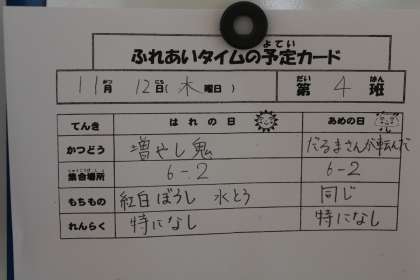 ふれあいタイムの予定カード
11月 12日(木曜日) 第 4 班
てんき はれの日 あめの日
かつどう 増やし鬼 だるまさんが転んだ
集合場所 6-2 6-2
もちもの 紅白ぼうし 水とう 同じ
れんらく 特になし 特になし